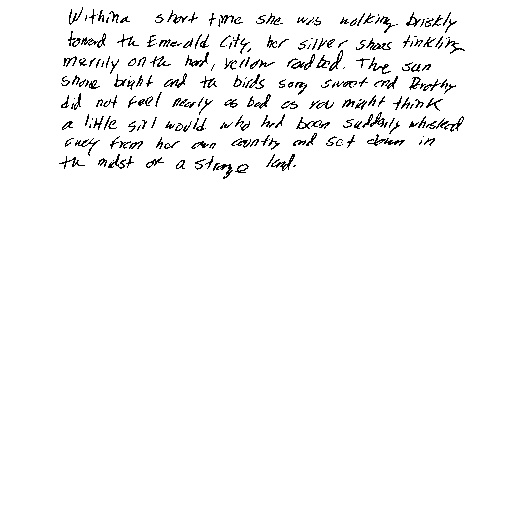 Within a short time she was walking briskly
toward the Emerald City, her silver shoes tinkling
merrily on the hard, yellow roadbed. The sun
shone bright and the birds song sweet and Dorothy
did not feel nearly as bad as you might think
a little girl would who had been suddenly whisked
away from her own country and set down in
the midst of a strange land.